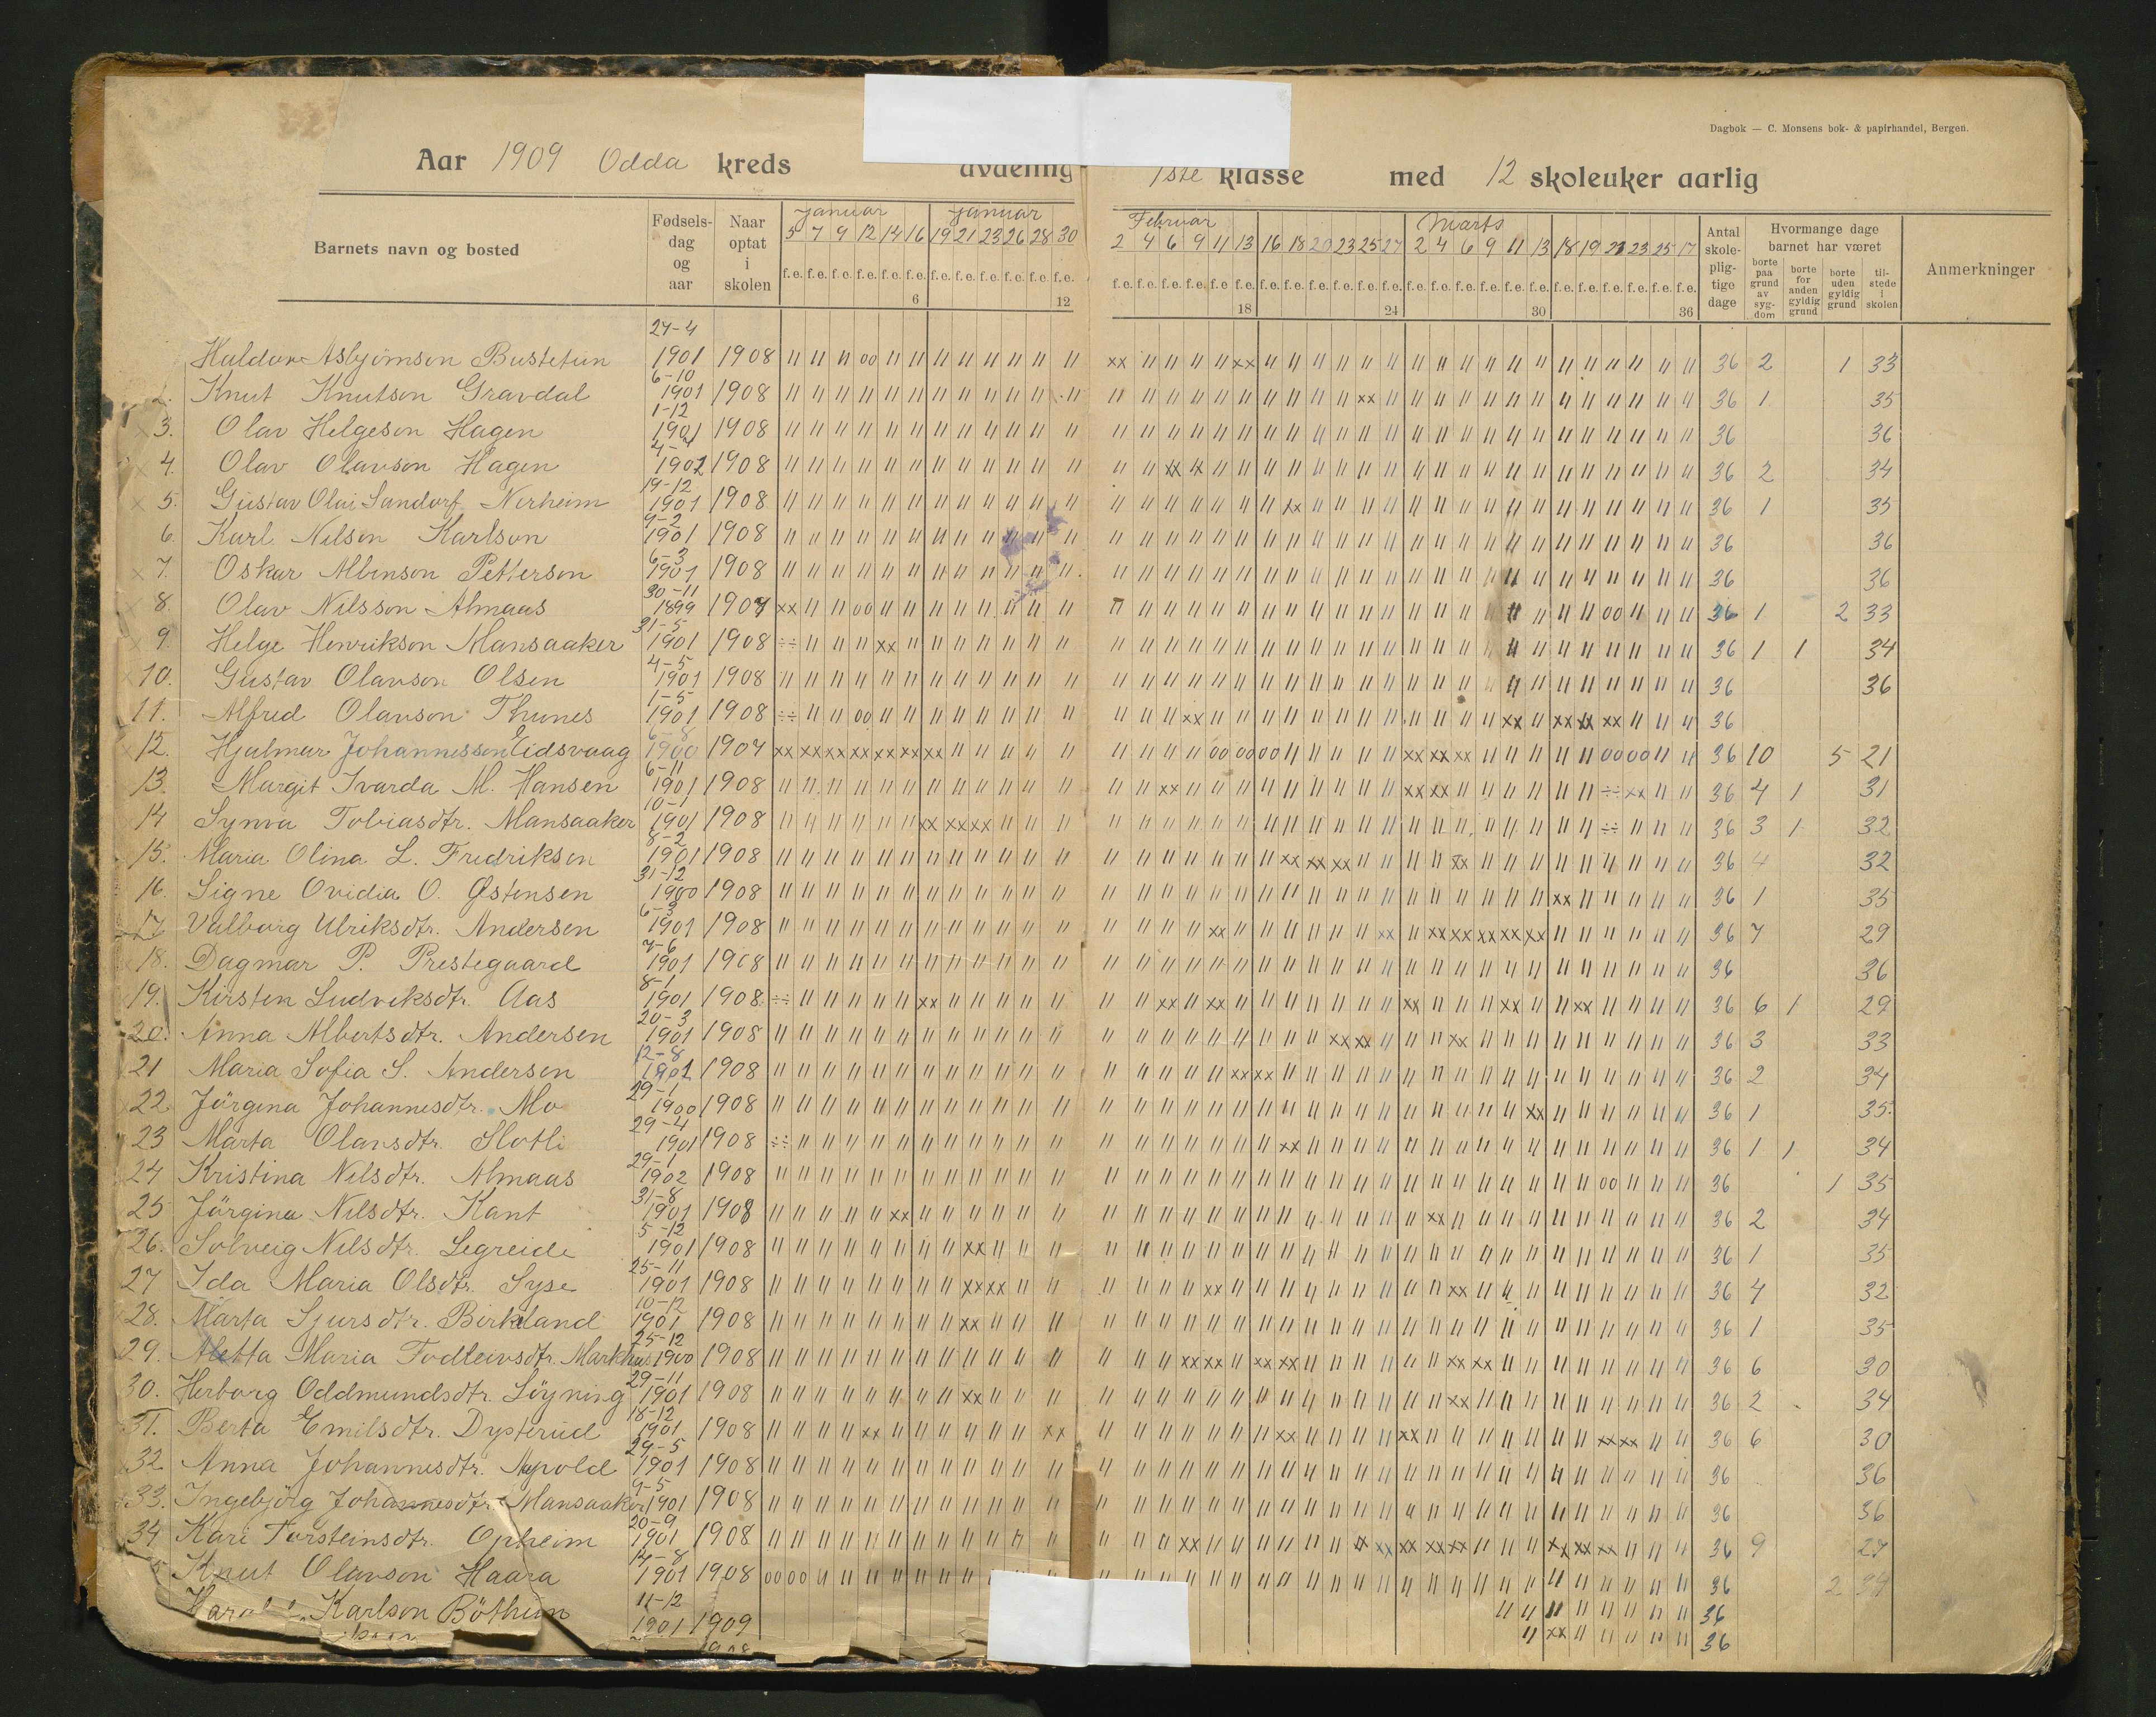 Dagbok — C. Monsens bok- & papirhandel, Bergen.
Aar 1909 Odda kreds avdeling 1ste klasse med 12 skoleuker aarlig
Barnets navn og bosted Fødsels-dag og aar Naar optat i skolen Januar Januar Februar Marts Antal skole-plig-tige dage Hvormange dage barnet har været Anmerkninger
5 7 9 12 14 16 19 21 23 26 28 30 2 4 6 9 11 13 16 18 20 23 25 27 2 4 6 9 11 13 18 19 23 25 17
borte paa grund av syg-dom borte for anden gyldig grund borte uden gyldig grund til-stede i skolen
f.e. f.e. f.e. f.e. f.e. f.e. f.e. f.e. f.e. f.e. f.e. f.e. f.e. f.e. f.e. f.e. f.e. f.e. f.e. f.e. f.e. f.e. f.e. f.e. f.e. f.e. f.e. f.e. f.e. f.e. f.e. f.e. f.e. f.e. f.e. f.e.
6 12 18 24 30 36
Haldor Asbjørnson Bustetun 27-4 1901 1908 36 2 1 33
2. Knut Knutson Gravdal 6-10 1901 1908 36 1 35
3. Olav Helgeson Hagen 1-12 1901 1908 36 36
4. Olav Olavson Hagen 1902 1908 36 2 34
5. Gustav Olai Sandorf Nerheim 19-12 1901 1908 36 1 35
6. Karl Nilsen Karlson 9-2 1901 1908 36 36
7. Oskar Albinson Petterson 6-3 1901 1908 36 36
8. Olav Nilsson Almaas 30-11 1899 1907 36 1 2 33
9. Helge Henrikson Mansaaker 31-5 1901 1908 36 1 1 34
10. Gustav Olavson Olsen 4-5 1901 1908 36 36
11. Alfred Olavson Thunes 1-5 1901 1908 36
12. Hjalmar Johannesson Eidsvaag 6-8 1900 1907 36 10 5 21
13. Margit Ivarda M. Hansen 6-11 1901 1908 36 4 1 31
14 Synva Tobiasdtr. Mansaaker 10-1 1901 1908 36 3 1 32
15. Maria Olina L. Fredriksen 8-2 1901 1908 36 4 32
16. Signe Ovidia O. Østensen 31-12 1900 1908 36 1 35
17. Valborg Ulriksdtr. Andersen 6-3 1901 1908 36 7 29
18. Dagmar P. Prestegaard 7-6 1901 1908 36 36
19. Kirsten Ludviksdtr. Aas 8-1 1901 1908 36 6 1 29
20. Anna Albertsdtr. Andersen 20-3 1901 1908 36 3 33
21 Maria Sofia S. Andersen 12-8 1901 1908 36 2 34
22 Jörgina Johannesdtr. Mo 29-1 1900 1908 36 1 35
23 Marta Olavsdtr. Slotli 29-4 1901 1908 36 1 1 34
24 Kristina Nilsdtr. Almaas 29-1 1902 1908 36 1 35
25 Jörgina Nilsdtr. Kant 31-8 1901 1908 36 2 34
26. Solveig Nilsdtr. Legreide 5-12 1901 1908 36 1 35
27 Ida Maria Olsdtr. Syse 25-11 1901 1908 36 4 32
28. Marta Sjursdtr. Birkeland 10-12 1901 1908 36 1 35
29. Aletta Maria Todleivsdtr. Markhus 25-12 1900 1908 36 6 30
30. Herborg Oddmundsdtr. Löyning 29-11 1901 1908 36 2 34
31. Berta Emilsdtr. Dysterud 18-12 1901 1908 36 6 30
32 Anna Johannesdtr. Mepold 29-5 1901 1908 36 36
33. Ingebjörg Johannesdtr. Mansaaker 9-5 1901 1908 36 36
34 Kari Torsteinsdtr. Opheim 20-9 1901 1908 36 9 27
Knut Olavson Haara 14-8 1901 1908 36 2 34
Karlson Böthun 11-12 1901 1909 36
36